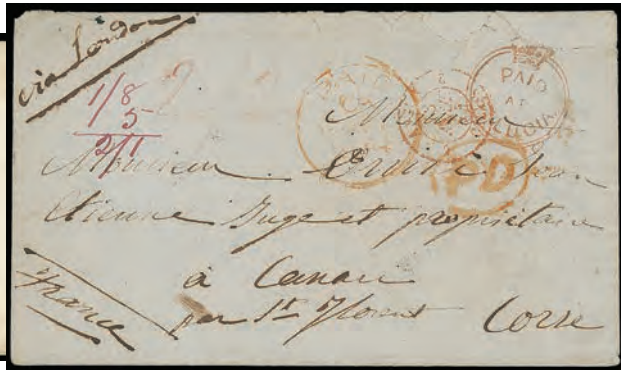 via London
1/8
5
2/1
PAID
AT
Monsieur
PD
Monsieur
Etienne Juge et propriétaire
à Canari
par St. Florent Corse
France